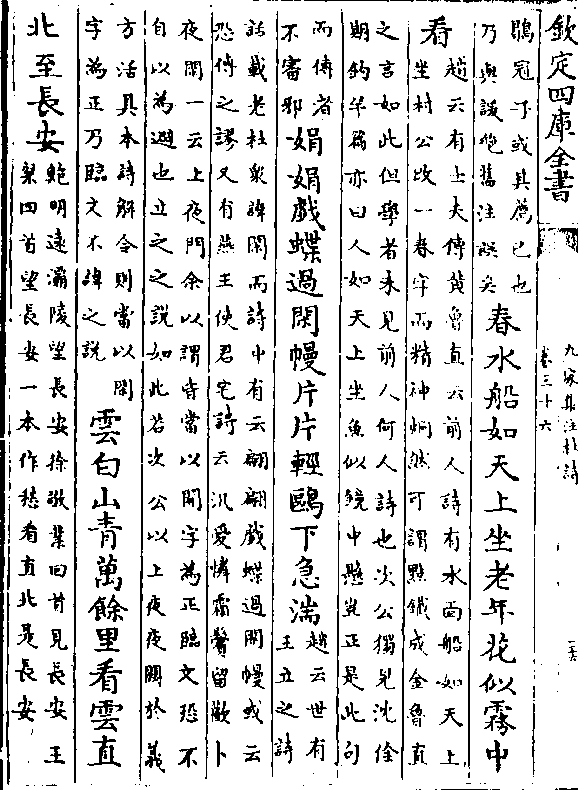 欽定四庫全書
九家集注杜詩
卷三十六
乃與 絶舊注誤矣
春水船如天上坐老年花似霧中
看
趙云有士大傳黄魯直云前人詩有水面船如天上
坐村公改一春字而精神炯然可謂點鐵成金魯直
之言如此但學者未見前人何人詩也次公獨見沈佺
期釣竿篇亦曰人如天上坐魚似鏡中懸豈正是此句
而傳者
不審邪
娟娟戲蝶過閑幔片片輕鷗下急湍
趙云世有
王立之詩
話載老杜家諱閑而詩中有云翩翩戲蝶過閑幔或云
恐傳之謬又有燕王使君宅詩云汎愛憐霜鬢留歡卜
夜閑一云上夜關余以謂皆當以閑字為正臨文恐不
自以為避也立之之說如此若次公以上夜夜關於義
方活具本詩解合則當以閑
字為正乃臨文不諱之説
雲白山青萬餘里看雲直
北至長安
鮑明遠灞陵望長安徐敬業回首見長安王
粲四首望長安一本作愁看直北是長安